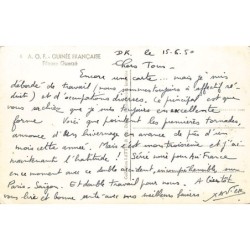 A.O.F. - GUINÉE FRANÇAISE
DK, le 15.6.50
Chers Tous,
Encore une carte... mais je suis
débordé de travail (nous sommes toujours à effectif ré-
duit) et d'occupations diverses. Le principal est que
vous sachiez que je me tiens toujours en excellente
forme. Voici que pointent les premières tornades,
annonce d'un hivernage en avance de près d'un
mois cette année. Mais c'est mon troisième et j'ai
maintenant l'habitude ! Série noire pour Air France
en ce moment avec ce double accident, incompréhensible, sur
Paris-Saïgon. Et double travail pour nous. A bientôt
vous lire et bonne santé avec mes meilleurs baisers